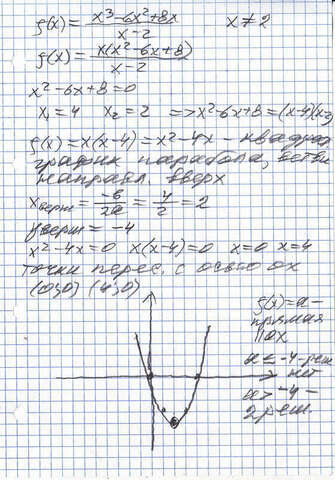 f(x) = x³-6x²+8x / x-2 x ≠ 2
f(x) = x(x²-6x+8) / x-2
x²-6x+8=0
x₁=4 x₂=2 => x²-6x+8=(x-4)(x-2)
f(x)=x(x-4)=x²-4x - квадрат
график парабола, ветви
направл. вверх
x верш = -b/2a = 4/2 = 2
y верш = -4
x²-4x=0 x(x-4)=0 x=0 x=4
точки перес. с осью ox
(0;0) (4;0)
f(x)=a -
прямая
||ox
a ≤ -4 - реш
нет
a > -4 -
2 реш.